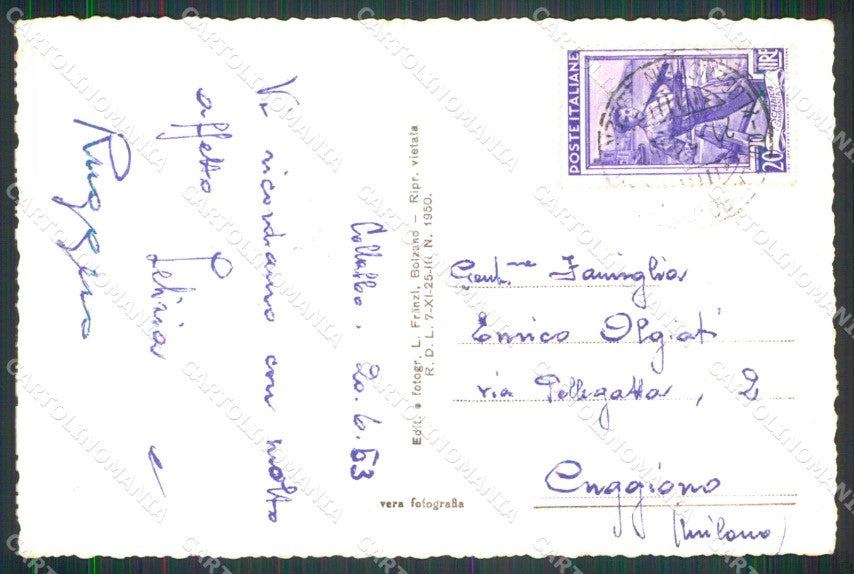 Vi ricordiamo con molto
affetto
Felicia e
Ruggero
Collalbo, 20.6.53
Edit. e fotogr. L. Fränzl, Bolzano – Ripr. vietata
R. D. L. 7-XI-25-III N. 1950.
vera fotografia
POSTE ITALIANE
LIRE
20
Gent.me Famiglia
Enrico Olgiati
via Pellegatta, 2
Cuggiono
(Milano)
CARTOLINOMANIA